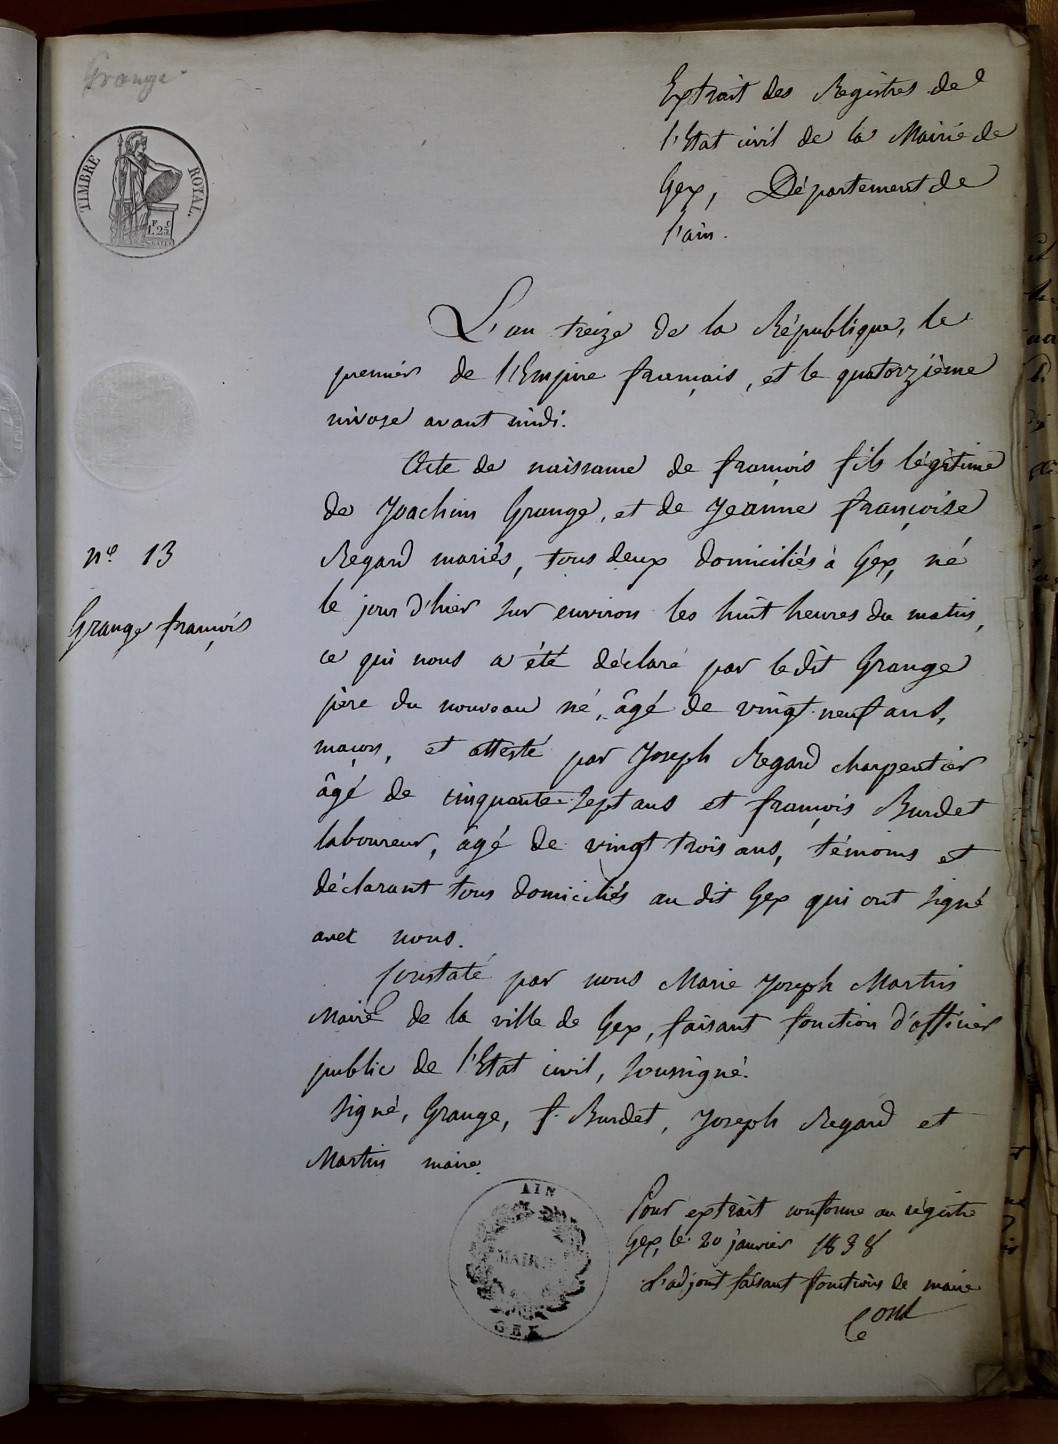 Grange
Extrait des Registres de
l'Etat civil de la Mairie de
Gex, Département de
l'ain.
TIMBRE ROYAL.
1.F 25.C
L'an treize de la République, le
premier de l'Empire français, et le quatorzième
nivose avant midi.
Acte de naissance de françois fils légitime
de Joachim Grange, et de Jeanne françoise
Regard mariés, tous deux domiciliés à Gex, né
le jour d'hier sur environ les huit heures du matin,
ce qui nous a été déclaré par le dit Grange
père du nouveau né, âgé de vingt neuf ans,
maçon, et attesté par Joseph Regard charpentier
âgé de cinquante-sept ans et françois Burdet
laboureur, âgé de vingt trois ans, témoins et
déclarant tous domiciliés au dit Gex qui ont signé
avec nous.
n.º 13
Grange françois
Constaté par nous Marie Joseph Martin
Maire de la ville de Gex, faisant fonction d'officier
public de l'Etat civil, soussigné.
Signé, Grange, f. Burdet, Joseph Regard et
Martin maire.
AIN
MAIRIE
GEX
Pour extrait conforme au régistre
Gex, le 20 janvier 1838
L'adjoint faisant fonctions de maire